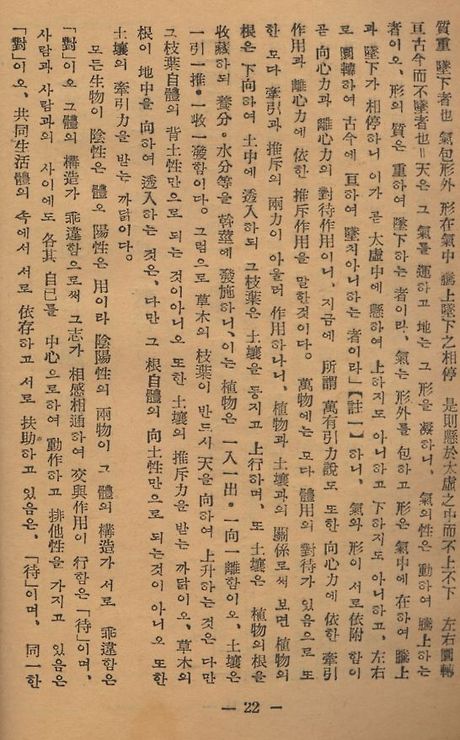 質重 墜下者也 氣包形外 形在氣中 騰上墜下之相停 是則懸於太虛之中而不上不下 左右圓轉
亘古今而不墜者也=天은 그 氣를 運하고 地는 그 形을 凝하니、氣의 性은 動하여 騰上하는
者이오、形의 質은 重하여 墜下하는 者이라、氣는 形外를 包하고 形은 氣中에 在하여 騰上
과 墜下가 相停하니 이가 곧 太虛中에 懸하여 上하지도 아니하고 下하지도 아니하고、左右
로 圓轉하여 古今에 亘하여 墜치아니하는 者이라」【註一】하니、氣와 形이 서로依附 함이
곧 向心力과 離心力의 對待作用이니、지금에 所謂 萬有引力說도 또한 向心力에 依한 牽引
作用과 離心力에 依한 推斥作用을 말한것이다。萬物에는 모다 體用의 對待가 있음으로 또
한 모다 牽引과 推斥의 兩力이 아울러 作用하나니、植物과 土壤과의 關係로써 보면 植物의
根은 下向하여 土中에 透入하되 그枝葉은 土壤을 등지고 上行하며、또 土壤은 植物의根을
收藏하되 養分。水分等을 幹莖에 發施하니、이는 植物은 一入一出。一向一離함이오、土壤은
一引一推。一收一發함이다。그럼으로 草木의 枝葉이 반드시 天을 向하여 上升하는 것은 다만
그枝葉自體의 背土性만으로 되는 것이아니오 또한 土壤의 推斥力을 받는 까닭이오、草木의
根이 地中을 向하여 透入하는 것은、다만 그 根自體의 向土性만으로 되는것이 아니오 또한
土壤의 牽引力을 받는 까닭이다。
모든生物이 陰性은 體오 陽性은 用이라 陰陽性의 兩物이 그 體의 構造가 서로 乖違함은
「對」이오 그體의 構造가 乖違함으로써 그志가 相感相通하여 交與作用이 行함은「待」이며、
사람과 사람과의 사이에도 各其 自己를 中心으로하여 動作하고 排他性을 가지고 있음은
「對」이오、共同生活體의 속에서 서로 依存하고 서로 扶助하고 있음은、「待」이며、同一한
— 22 —